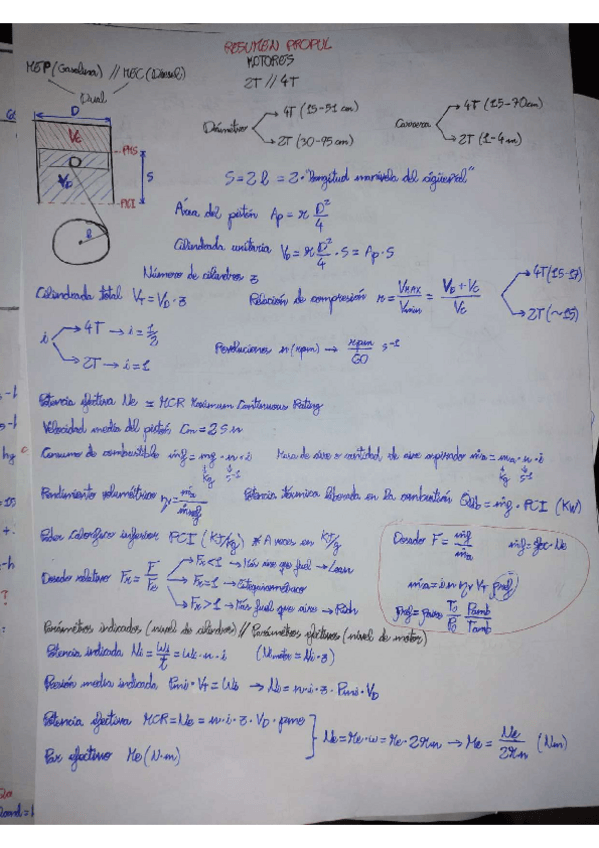 RESUMEN PROPUL
MOTORES
MEP (Gasolina) // MEC (Diesel)
Dual
2T // 4T
Diámetro → 4T (15-51 cm)
→ 2T (30-95 cm)
Carrera → 4T (15-70cm)
→ 2T (1-4m)
D
VC
PMS
VD
S
PMI
R
S = 2 l = 2 · "longitud manivela del cigüeñal"
Área del pistón Ap = π D²/4
Cilindrada unitaria VD = π D²/4 · S = Ap · S
Número de cilindros z
Cilindrada total VT = VD · z
Relación de compresión r = VMAX/Vmin = (VD + VC)/VC → 4T (15-17)
→ 2T (~15)
i → 4T → i = 1/2
→ 2T → i = 1
Revoluciones n (rpm) → rpm/60 s⁻¹
Potencia efectiva Ne ≃ MCR Maximum Continuous Rating
Velocidad media del pistón Cm = 2 S n
Consumo de combustible ṁf = mf · n · i
Masa de aire o cantidad de aire aspirado ṁa = ma · n · i
kg s⁻¹
kg s⁻¹
Rendimiento volumétrico ηv = ṁa/ṁref
Potencia térmica liberada en la combustión Q̇lib = ṁf · PCI (KW)
Poder Calorífico inferior PCI (KJ/kg) * A veces en KJ/g
Dosado F = ṁf/ṁa ṁf = gec · Ne
Dosado relativo FR = F/Fe → FR < 1 → Más aire que fuel → Lean
→ FR = 1 → Estequiométrico
→ FR > 1 → Más fuel que aire → Rich
ṁa = i n ηv VT ρref
ρref = ρaire T0/P0 Pamb/Tamb
Parámetros indicados (nivel de cilindro) // Parámetros efectivos (nivel de motor)
Potencia indicada Ni = Wi/t = Wi · n · i (Nimotor = Ni · z)
Presión media indicada Pmi · VT = Wi → Ni = n · i · z · Pmi · VD
Potencia efectiva MCR = Ne = n · i · z · VD · pme
Par efectivo Me (N·m)
Ne = Me · ω = Me · 2πn → Me = Ne/2πn (Nm)